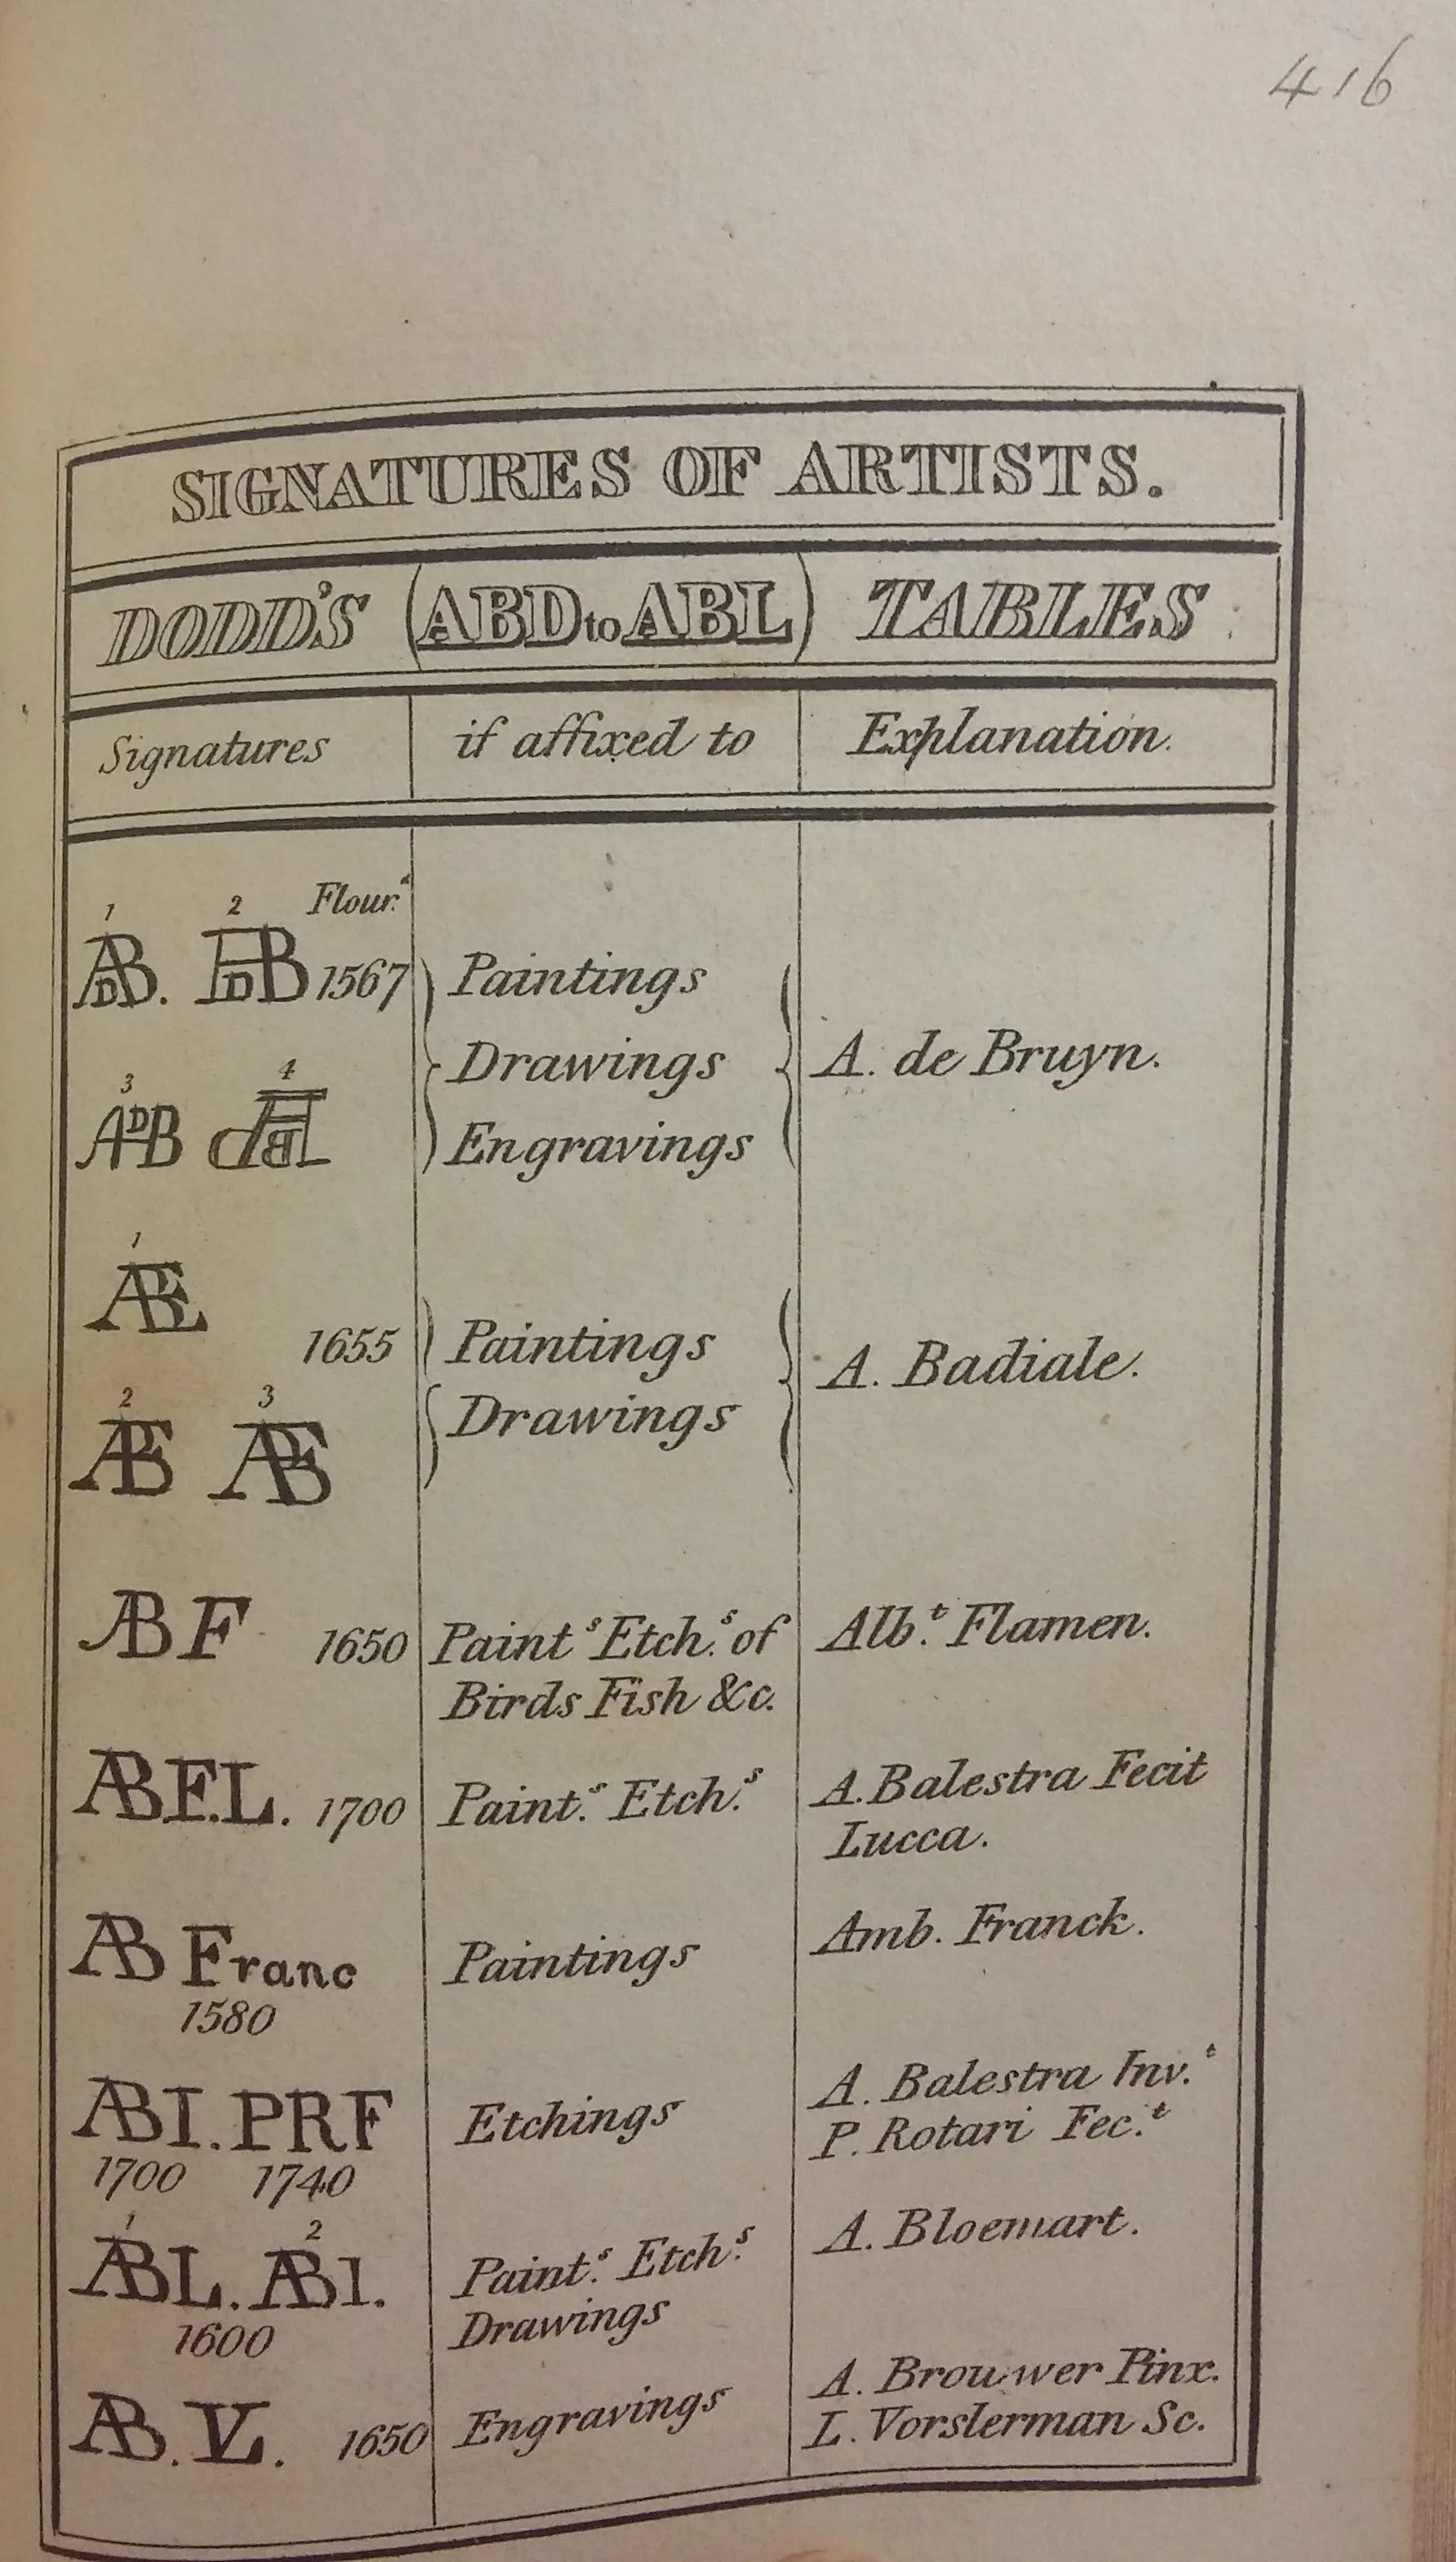 416
SIGNATURES OF ARTISTS.
DODD'S (ABD to ABL) TABLES
Signatures if affixed to Explanation.
1 2 Flour.d
ABD. ADB 1567 Paintings
Drawings A. de Bruyn.
3 4
ADB Engravings
1
ABE
1655 Paintings A. Badiale.
2 3 Drawings
ABE ABE
AB F 1650 Paint s Etch.s of Alb.t Flamen.
Birds Fish &c.
AB.F.L. 1700 Paint.s Etch.s A. Balestra Fecit
Lucca.
AB Franc Paintings Amb. Franck.
1580
ABI. PRF Etchings A. Balestra Inv.t
1700 1740 P. Rotari Fec.t
1 2
ABL. ABI. Paint.s Etch.s A. Bloemart.
1600 Drawings
AB. VL. 1650 Engravings A. Brouwer Pinx.
L. Vorslerman Sc.